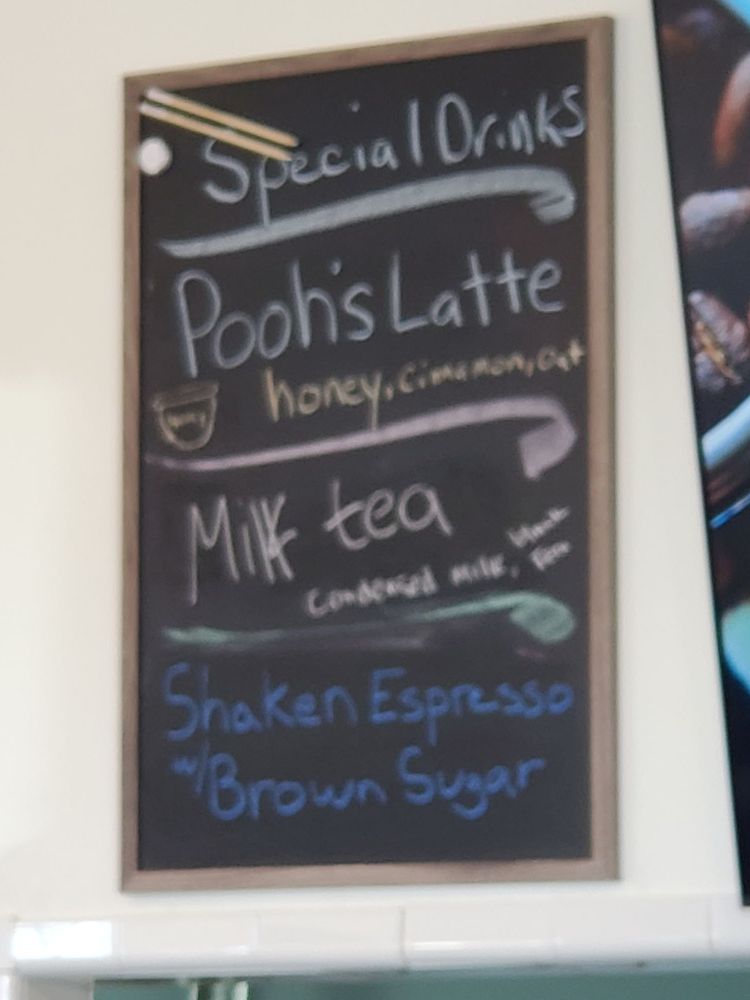 Special Drinks
Pooh's Latte
honey, cimemon, oat
honey
Milk tea
Condensed milk, black
Tea
Shaken Espresso
w/Brown Sugar